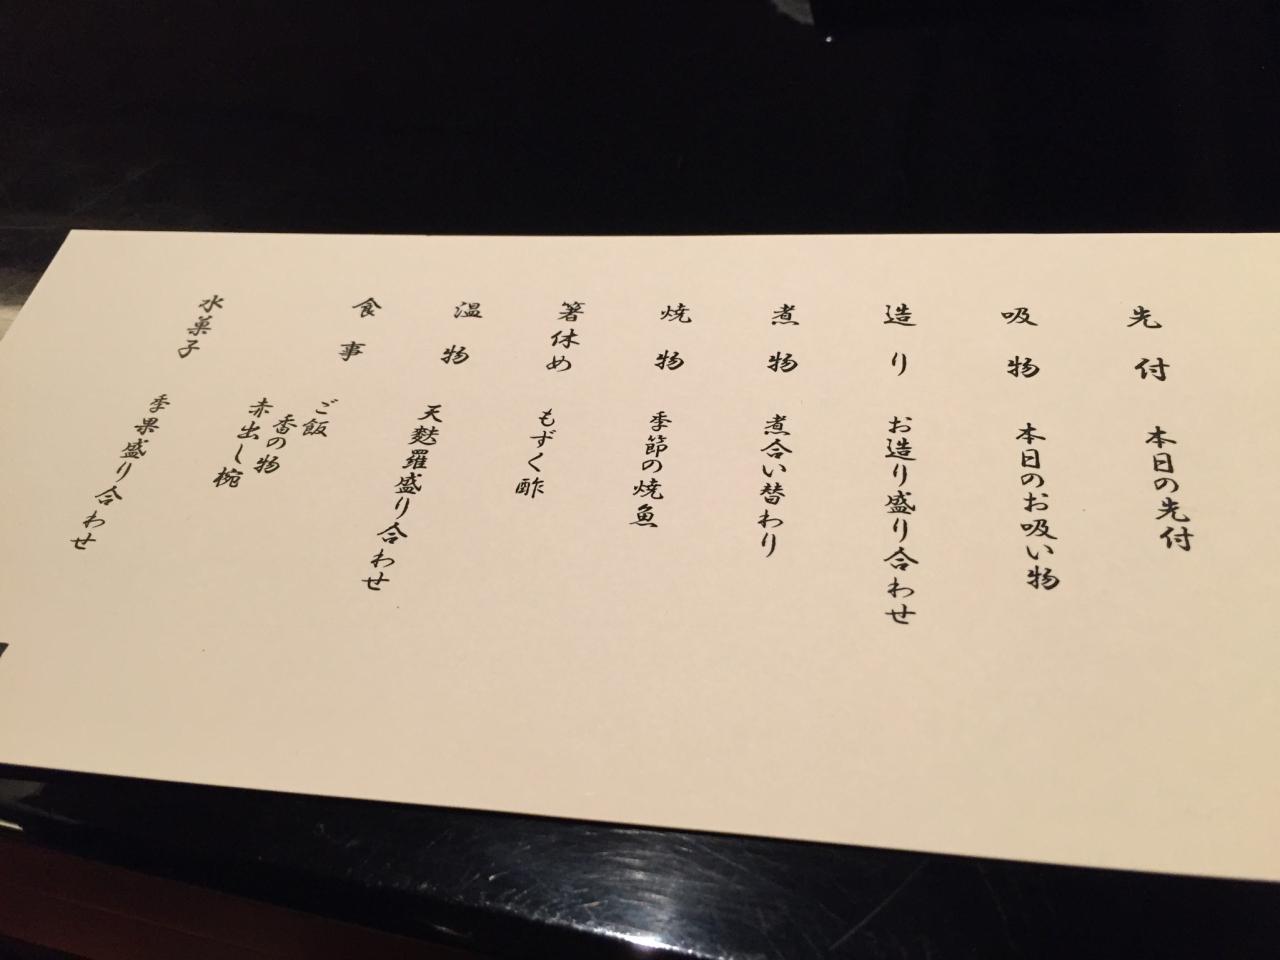 先付 本日の先付
吸物 本日のお吸い物
造り お造り盛り合わせ
煮物 煮合い替わり
焼物 季節の焼魚
箸休め もずく酢
温物 天麩羅盛り合わせ
食事 ご飯
香の物
赤出し椀
水菓子 季果盛り合わせ